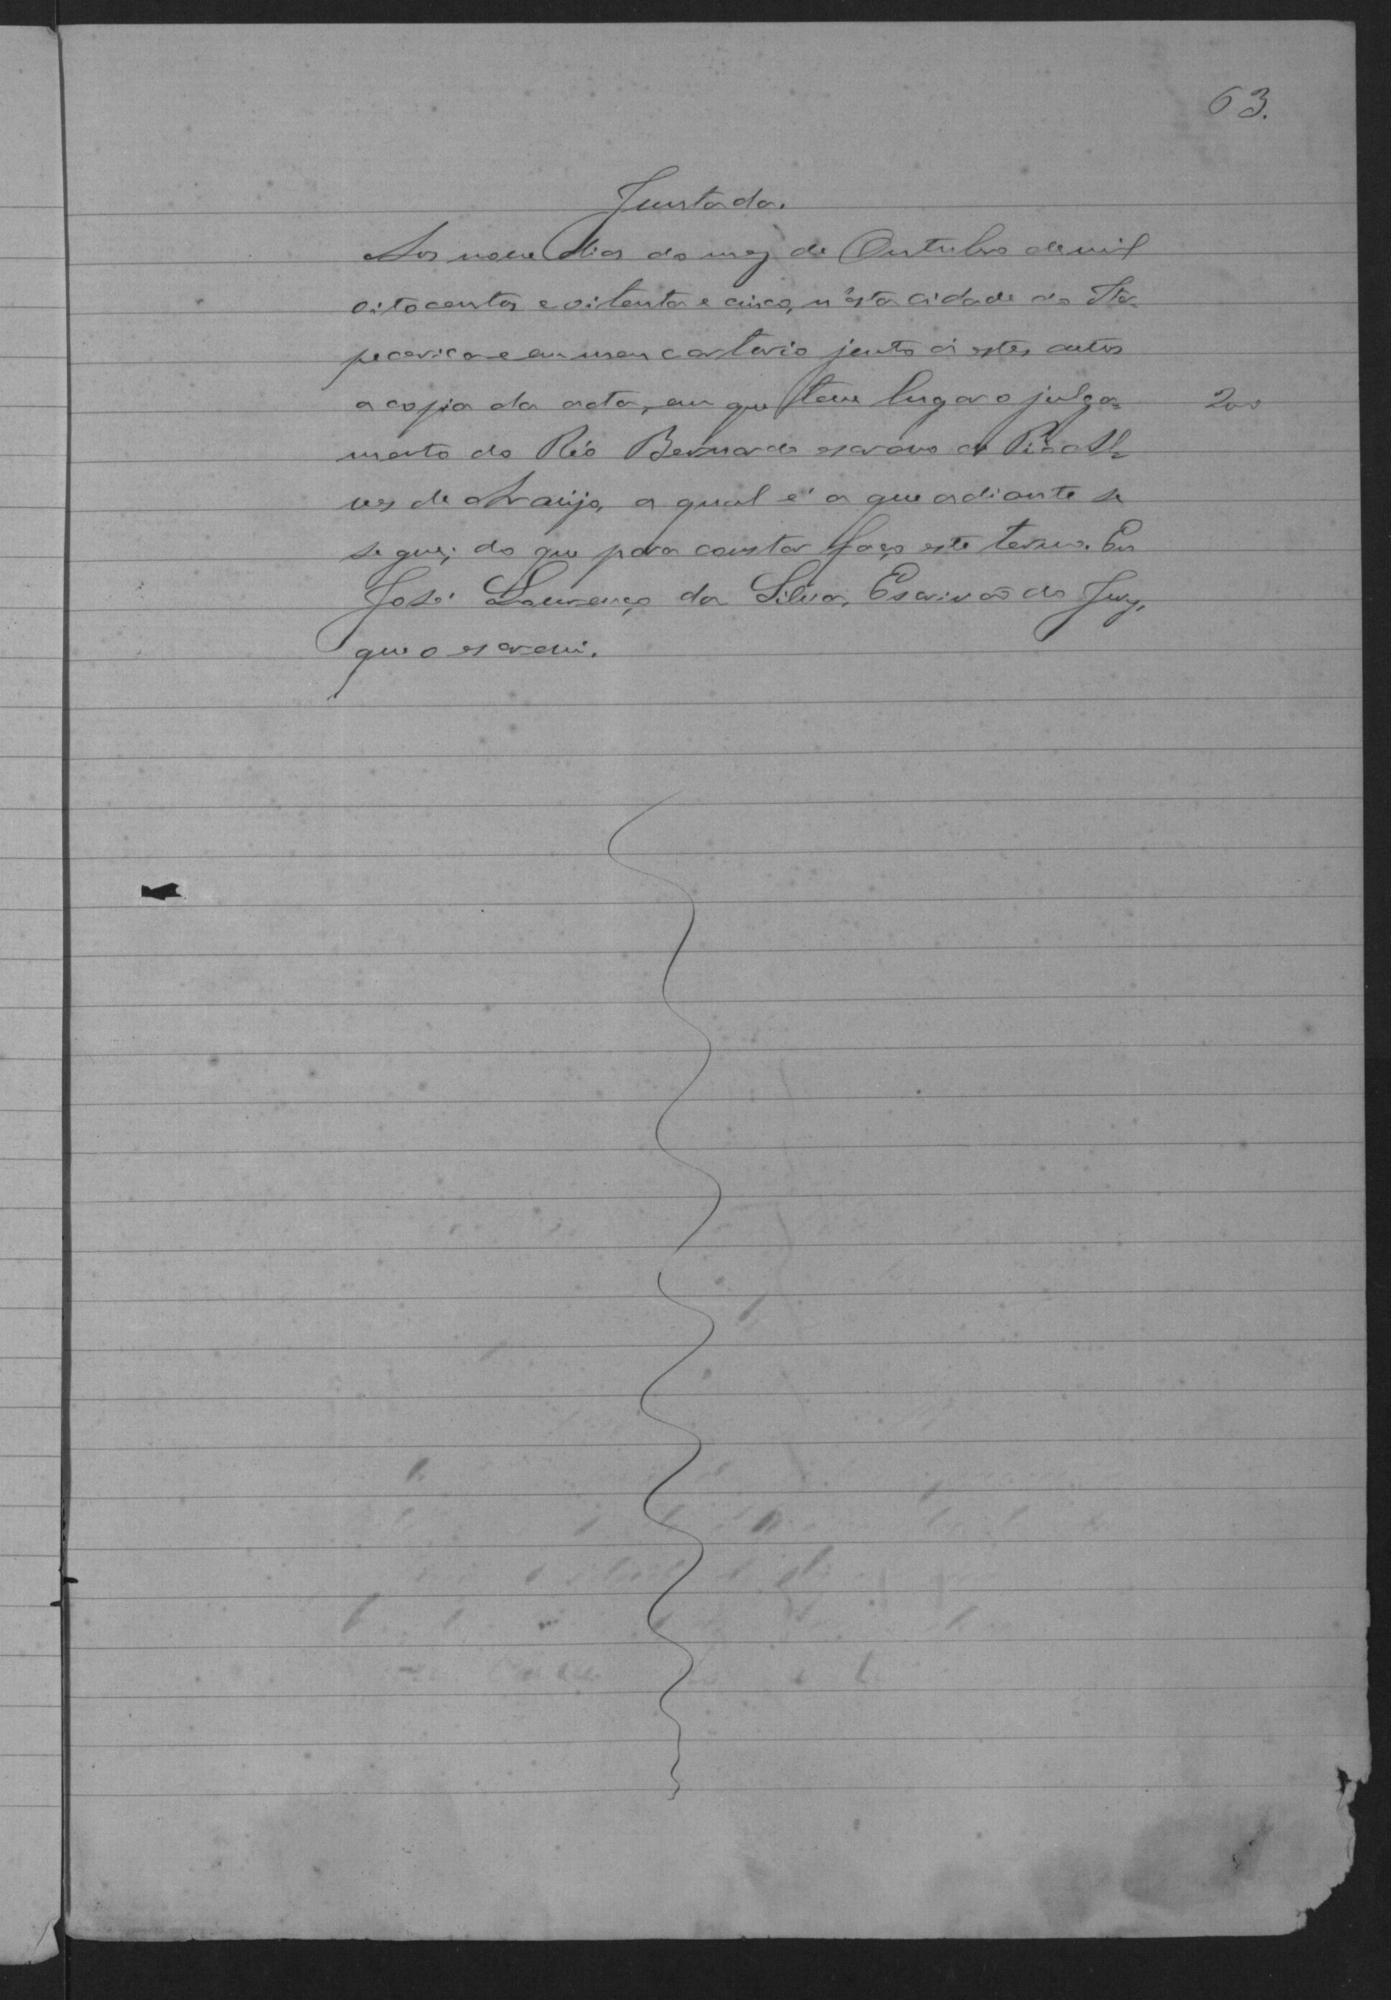 63.
Juntada.
Aos nove dias do mez de Outubro de mil
oito centos e oitenta e cinco, n'esta cidade de Ita-
pecerica e em meu cartorio junto á estes autos
a copia da acta, em que teve lugar o julga- 200
mento do Réo Bernardo escravo de Pio Al-
ves de Araujo, a qual é a que adiante se
segue; do que para constar faço este termo. Eu
José Lourenço da Silva, Escrivão do Jury,
que o escrevi.